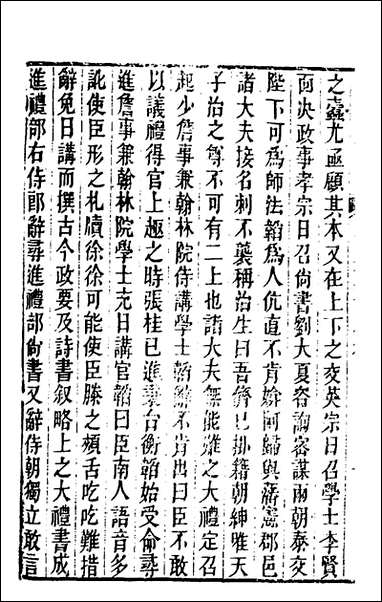 之蠹尤亟顧其本又在上下之交英宗日召學士李賢
面决政事孝宗日召尚書劉大夏咨謀兩朝泰交
陛下可爲師法韜爲人伉直不肯婀與藩憲郡邑
諸大夫接名刺不襲稱治生曰吾曾已掛籍朝紳雅天
子治之尊不可有二上也諸大夫無能難之大禮定召
起少詹事兼翰林院侍講學士韜辭不肯出曰臣不敢
以議禮得官上趣之時張桂已進台衡韜始受命尋
進詹事兼翰林院學士充日講官韜曰臣南人語音多
訛使臣形之札牘徐徐可能使臣騰之頰舌吃吃難措
辭免日講而撰古今政要及詩書叙略上之大禮書成
進禮部右侍郎辭尋進禮部尚書又辭侍朝獨立敢言